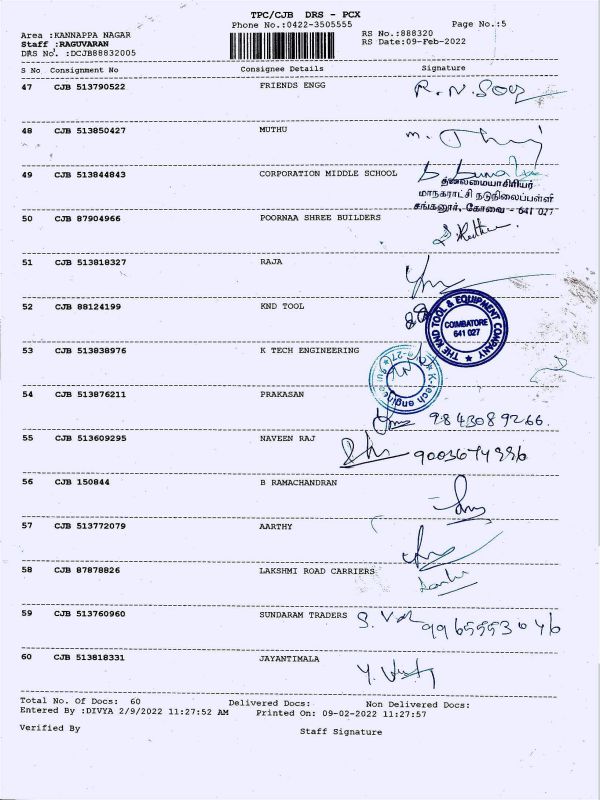 TPC/CJB DRS - PCX
Phone No.:0422-3505555 Page No.:5
Area :KANNAPPA NAGAR RS No.:888320
Staff :RAGUVARAN RS Date:09-Feb-2022
DRS No. :DCJB88832005
S No Consignment No Consignee Details Signature
47 CJB 513790522 FRIENDS ENGG
48 CJB 513850427 MUTHU
49 CJB 513844843 CORPORATION MIDDLE SCHOOL
தலைமையாசிரியர்
மாநகராட்சி நடுநிலைப்பள்ளி
சங்கனூர், கோவை - 641 027
50 CJB 87904966 POORNAA SHREE BUILDERS
51 CJB 513818327 RAJA
52 CJB 88124199 KND TOOL
THE KND TOOL & EQUIPMENT COMPANY
COIMBATORE
641 027
53 CJB 513838976 K TECH ENGINEERING
54 CJB 513876211 PRAKASAN
9843089266.
55 CJB 513609295 NAVEEN RAJ
56 CJB 150844 B RAMACHANDRAN
57 CJB 513772079 AARTHY
58 CJB 87878826 LAKSHMI ROAD CARRIERS
59 CJB 513760960 SUNDARAM TRADERS
60 CJB 513818331 JAYANTIMALA
Total No. Of Docs: 60 Delivered Docs: Non Delivered Docs:
Entered By :DIVYA 2/9/2022 11:27:52 AM Printed On: 09-02-2022 11:27:57
Verified By Staff Signature